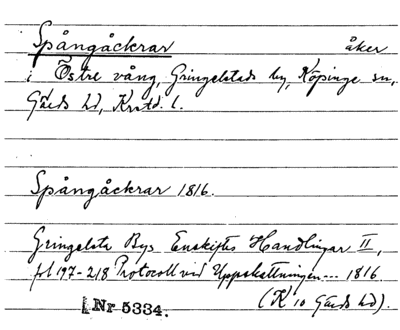 Spångåckrar åker
i Östre vång, Gringelstads by, Köpinge sn,
Gärds hd, Krstd. l.
Spångåckrar 1816.
Gringelsta Bys Enskiftes Handlingar II,
fol 197-218 Protocoll vid Uppskattningen --- 1816
(K 10 Gärds hd).
Nr 5334.